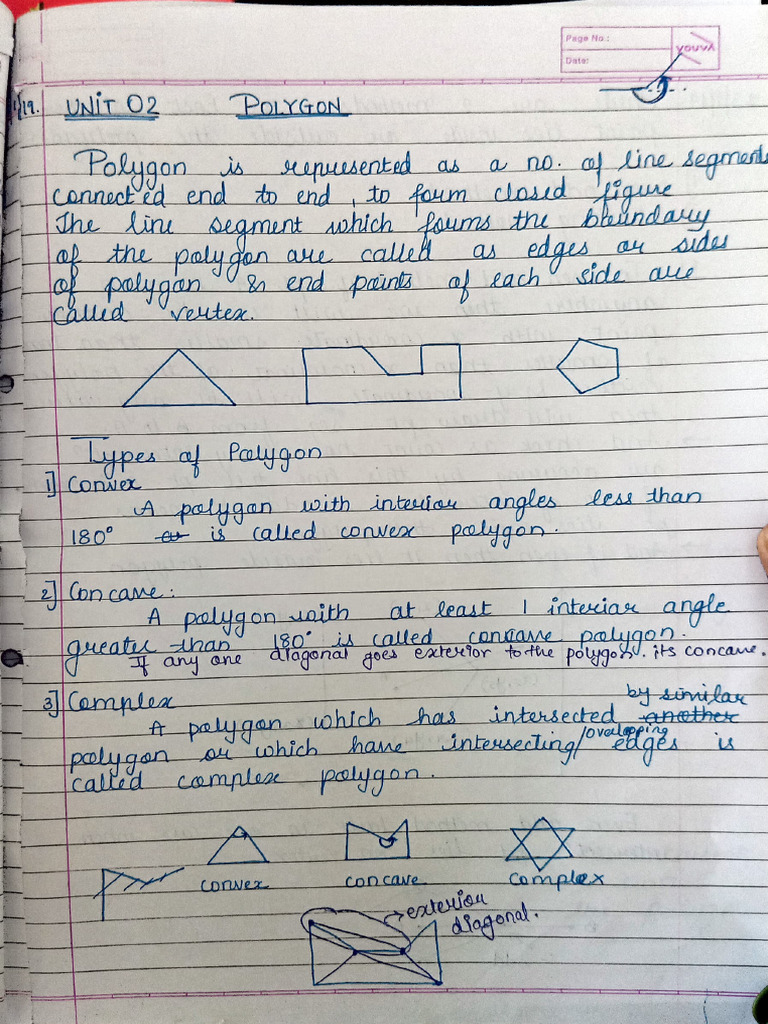 Page No.:
Date:
YOUVA
19. UNIT 02 POLYGON
Polygon is represented as a no. of line segments
connected end to end, to form closed figure
The line segment which forms the boundary
of the polygon are called as edges or sides
of polygon & end points of each side are
called vertex.
Types of Polygon
1] Convex
A polygon with interior angles less than
180° or is called convex polygon.
2] Concave:
A polygon with at least 1 interior angle
greater than 180° is called concave polygon.
If any one diagonal goes exterior to the polygon. its concave.
3] Complex
by similar
A polygon which has intersected another
polygon or which have intersecting/overlapping edges is
called complex polygon.
convex concave complex
exterior
diagonal.